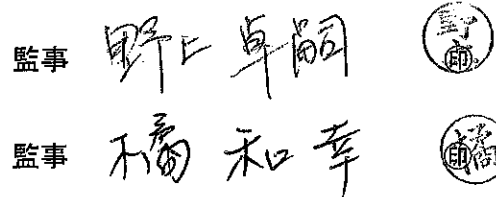 監事 野上 卓嗣 印
監事 橘 和幸 印